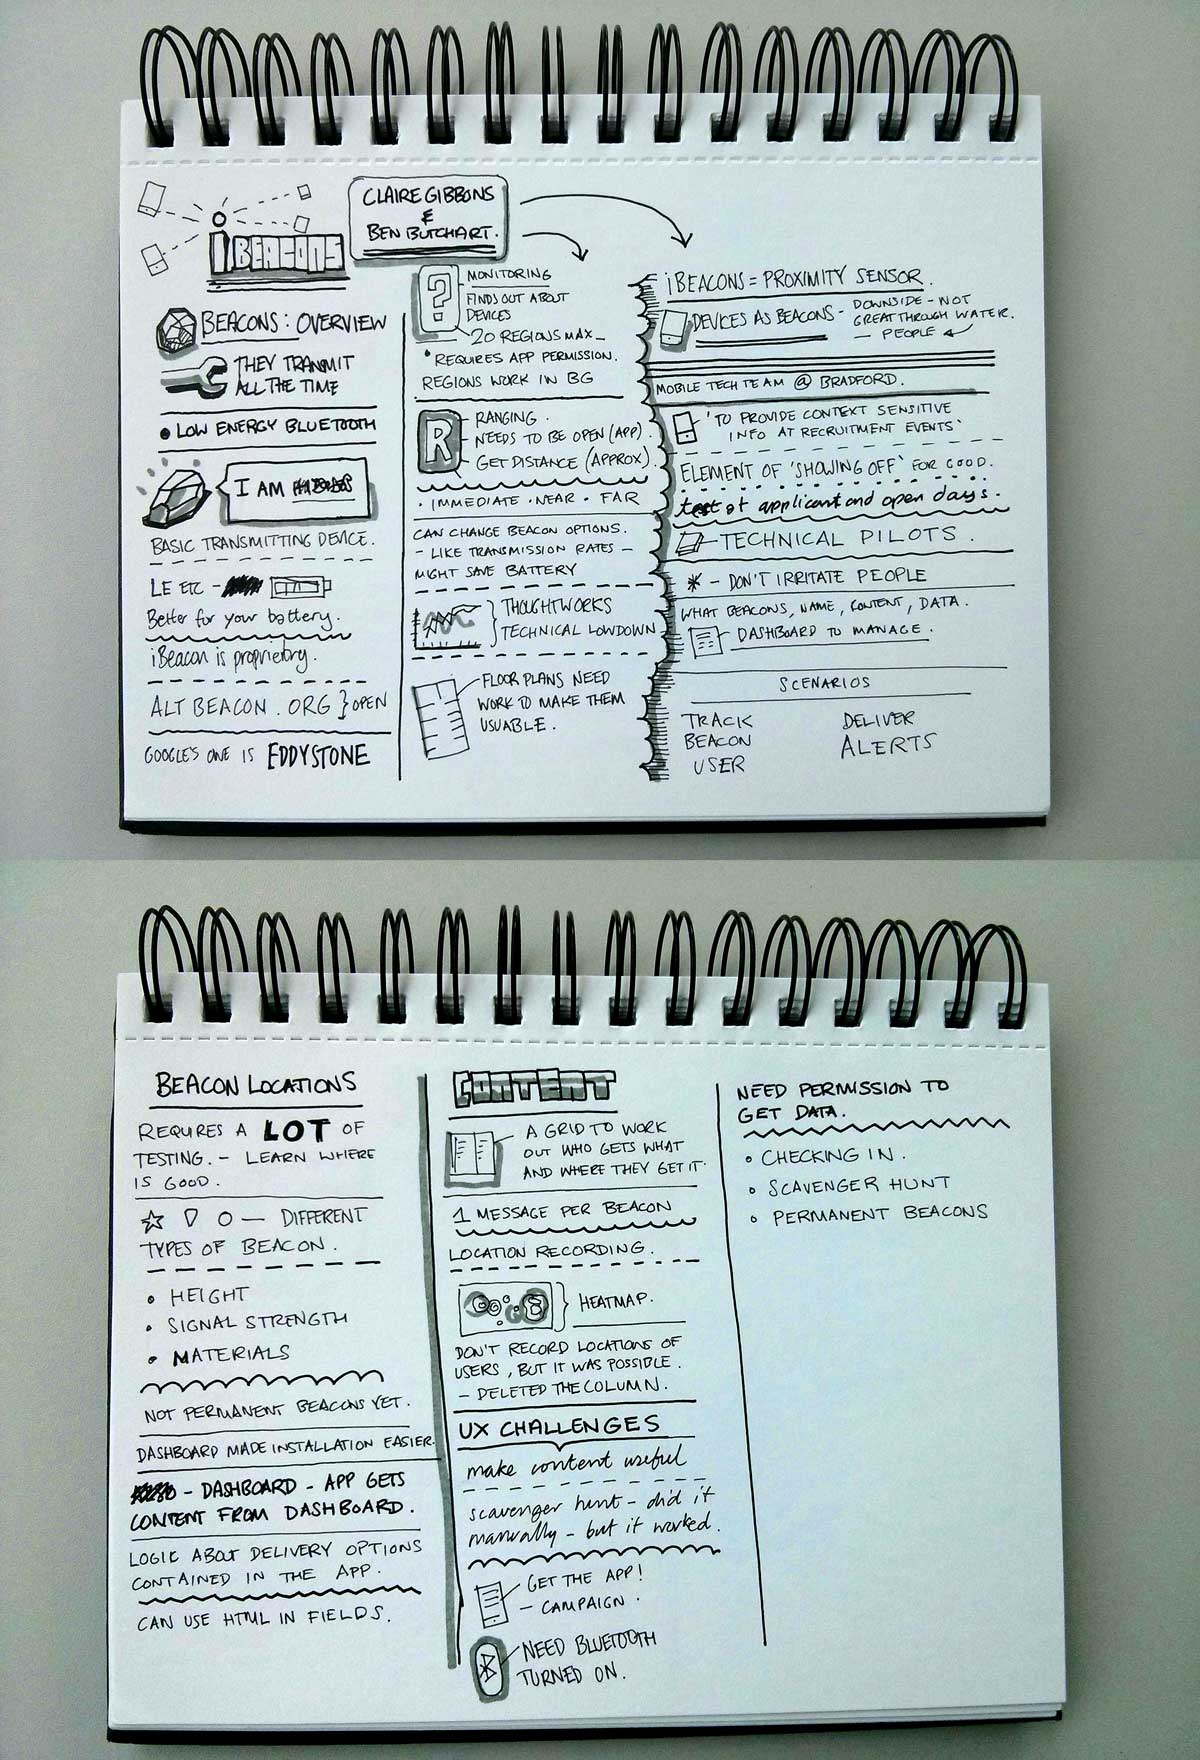 iBEACONS
CLAIRE GIBBONS
&
BEN BUTCHART.
BEACONS: OVERVIEW
THEY TRANSMIT
ALL THE TIME
• LOW ENERGY BLUETOOTH
I AM
BASIC TRANSMITTING DEVICE.
LE ETC -
Better for your battery.
iBeacon is proprietory.
ALT BEACON . ORG } OPEN
GOOGLE'S ONE IS EDDYSTONE
?
MONITORING
FINDS OUT ABOUT
DEVICES
20 REGIONS MAX –
• REQUIRES APP PERMISSION.
REGIONS WORK IN BG
R
RANGING.
NEEDS TO BE OPEN (APP).
GET DISTANCE (APPROX).
• IMMEDIATE • NEAR • FAR
CAN CHANGE BEACON OPTIONS.
– LIKE TRANSMISSION RATES –
MIGHT SAVE BATTERY
THOUGHTWORKS
TECHNICAL LOWDOWN
FLOOR PLANS NEED
WORK TO MAKE THEM
USUABLE.
iBEACONS = PROXIMITY SENSOR
DEVICES AS BEACONS -
DOWNSIDE - NOT
GREAT THROUGH WATER.
— PEOPLE
MOBILE TECH TEAM @ BRADFORD.
'TO PROVIDE CONTEXT SENSITIVE
INFO AT RECRUITMENT EVENTS'
ELEMENT OF 'SHOWING OFF' FOR GOOD.
test at applicant and open days.
TECHNICAL PILOTS.
* - DON'T IRRITATE PEOPLE
WHAT BEACONS, NAME, CONTENT, DATA.
DASHBOARD TO MANAGE.
SCENARIOS
TRACK
BEACON
USER
DELIVER
ALERTS
BEACON LOCATIONS
REQUIRES A LOT OF
TESTING. – LEARN WHERE
IS GOOD.
— DIFFERENT
TYPES OF BEACON.
• HEIGHT
• SIGNAL STRENGTH
• MATERIALS
NOT PERMANENT BEACONS YET.
DASHBOARD MADE INSTALLATION EASIER.
- DASHBOARD - APP GETS
CONTENT FROM DASHBOARD.
LOGIC ABOUT DELIVERY OPTIONS
CONTAINED IN THE APP.
CAN USE HTML IN FIELDS.
CONTENT
A GRID TO WORK
OUT WHO GETS WHAT
AND WHERE THEY GET IT.
1 MESSAGE PER BEACON
LOCATION RECORDING.
HEATMAP.
DON'T RECORD LOCATIONS OF
USERS, BUT IT WAS POSSIBLE.
– DELETED THE COLUMN.
UX CHALLENGES
make content useful
scavenger hunt - did it
manually - but it worked.
GET THE APP!
– CAMPAIGN.
NEED BLUETOOTH
TURNED ON.
NEED PERMISSION TO
GET DATA.
• CHECKING IN.
• SCAVENGER HUNT
• PERMANENT BEACONS